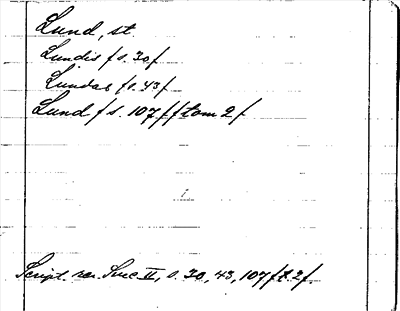 Lund, st.
Lundis /s. 30/
Lundas /s. 43/
Lund /s. 107 / /tom 2/
Script. rer. Suec. II, s. 30, 43, 107 /t. 2/.